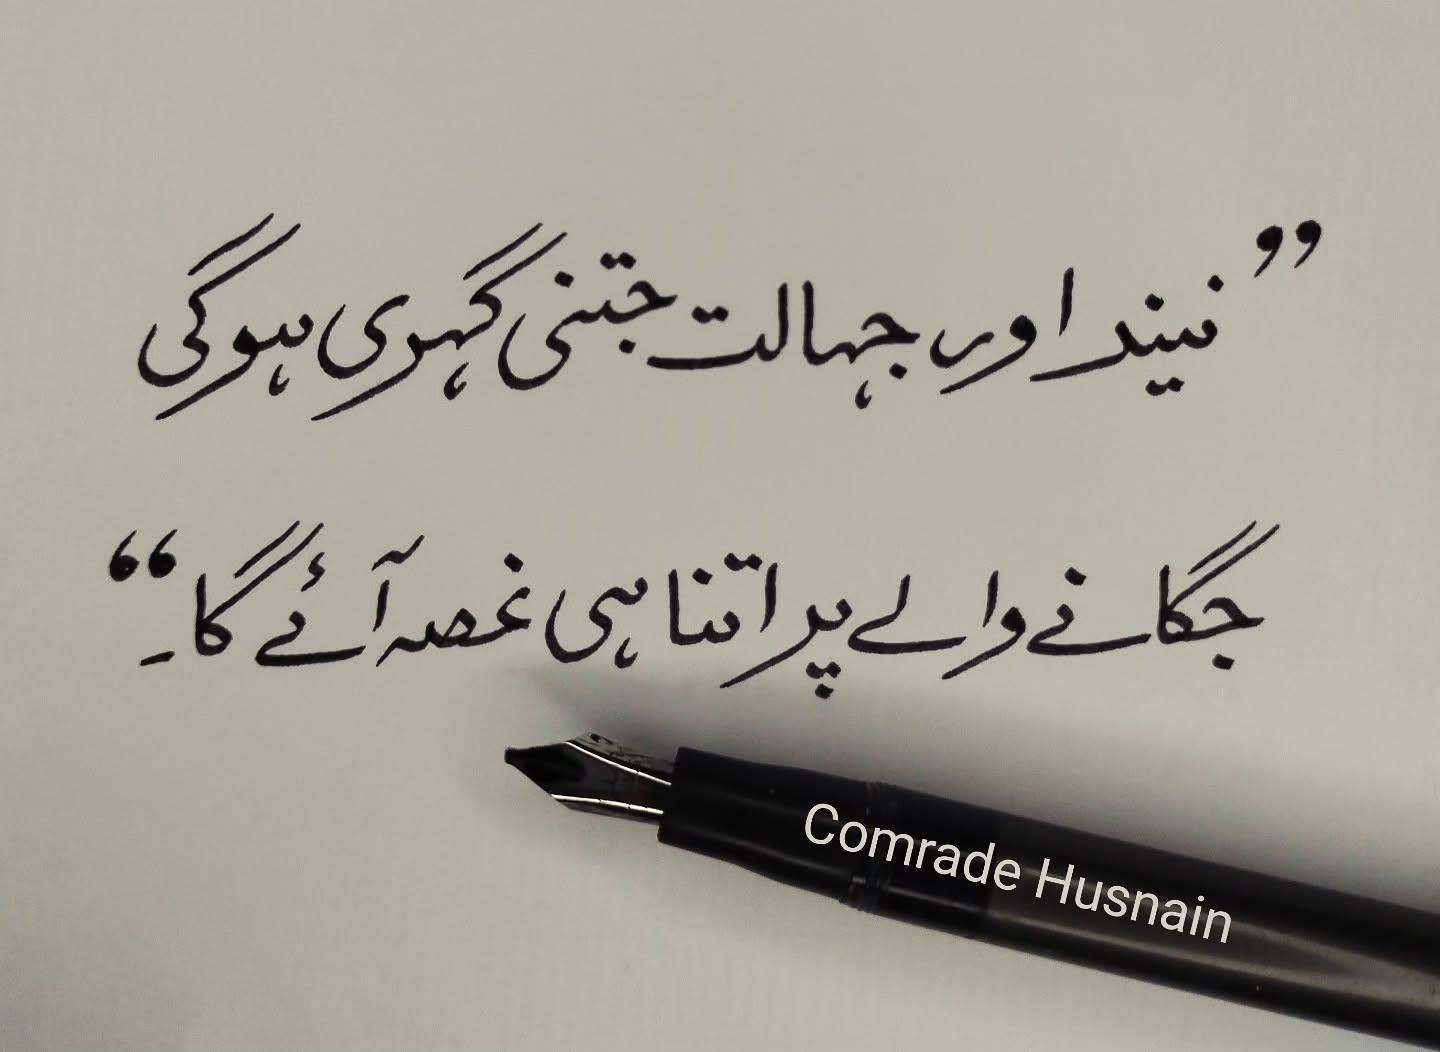 ”نیند اور جہالت جتنی گہری ہوگی
جگانے والے پر اتنا ہی غصہ آئے گا۔“
Comrade Husnain